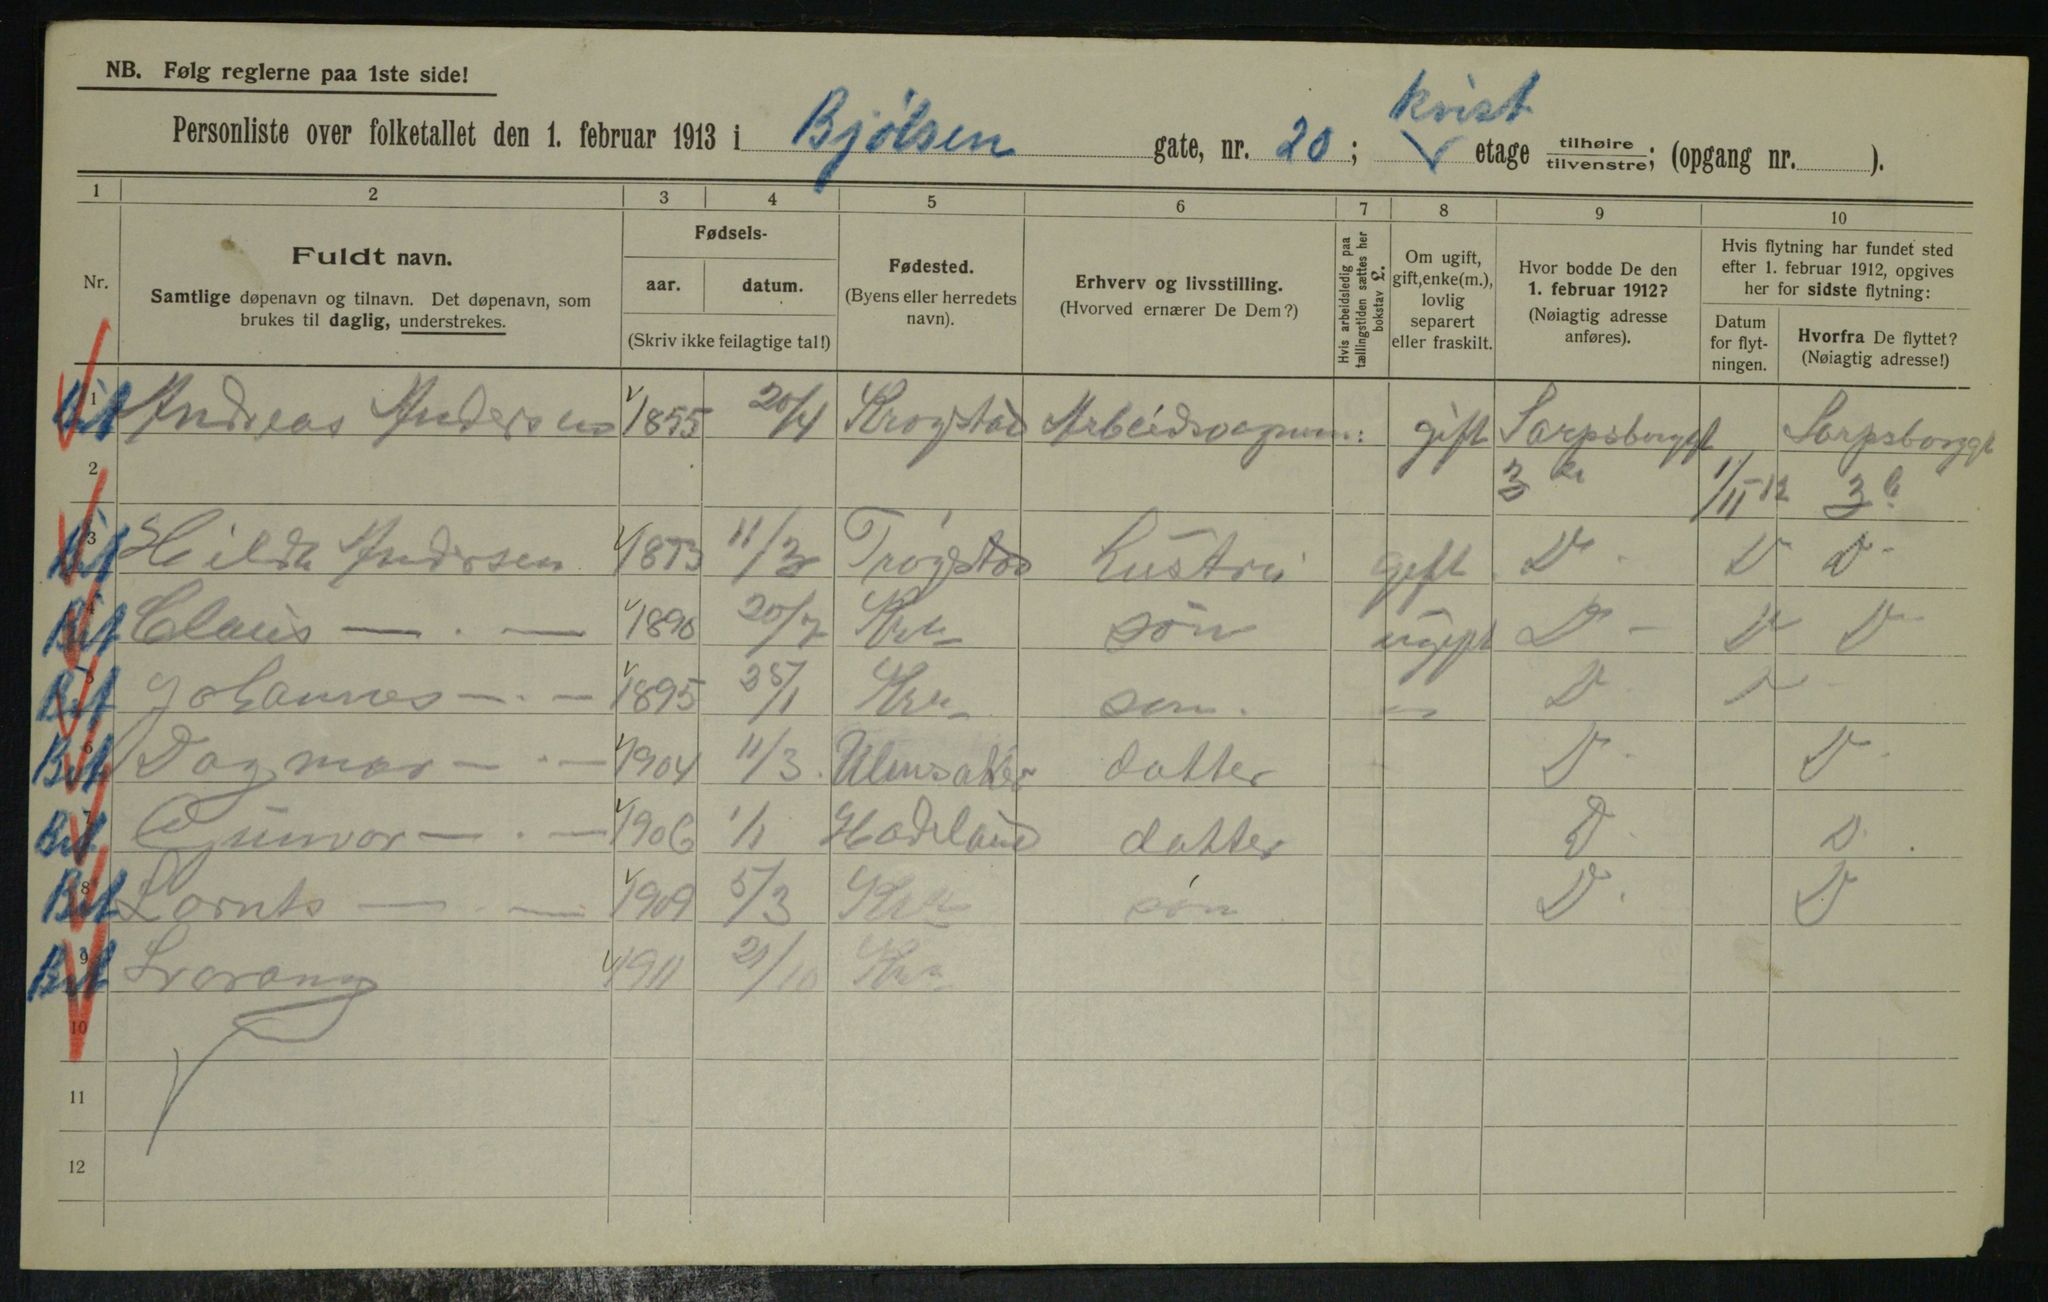 NB. Følg reglerne paa 1ste side!
kvist
Personliste over folketallet den 1. februar 1913 i Bjølsen gate, nr. 20; etage tilhøire / tilvenstre; (opgang nr. ).
1 2 3 4 5 6 7 8 9 10
Nr.
Fuldt navn.
Samtlige døpenavn og tilnavn. Det døpenavn, som
brukes til daglig, understrekes.
Fødsels-
aar. datum.
(Skriv ikke feilagtige tal!)
Fødested.
(Byens eller herredets
navn).
Erhverv og livsstilling.
(Hvorved ernærer De Dem?)
Hvis arbeidsledig paa
tællingstiden sættes her
bokstav L.
Om ugift,
gift, enke(m.),
lovlig
separert
eller fraskilt.
Hvor bodde De den
1. februar 1912?
(Nøiagtig adresse
anføres).
Hvis flytning har fundet sted
efter 1. februar 1912, opgives
her for sidste flytning:
Datum
for flyt-
ningen.
Hvorfra De flyttet?
(Nøiagtig adresse!)
1 Andreas Andersen 1855 20/4 Krogstad gift Sarpsborggt Sarpsborggt
2 3 1/11 12 3
3 Hilda Andersen 1873 11/3 Trøgstad hustru gift D D D
Bet 4 Claus — . — 1890 20/7 Kra søn ugift D — D D
Bet 5 Johannes — . — 1895 25/1 Kra søn. — D D
Bet 6 Dagmar — . — 1904 11/3. Ullensaker datter D D
Bet 7 Gunvor — . — 1906 1/1 Hadeland datter D D.
Bet 8 Lornts — . — 1909 5/3 Kra søn D D
Bet 9 1911 21/10 Kra
10
11
12